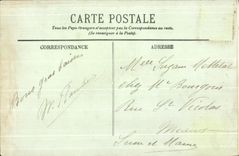 CARTE POSTALE
Tous les Pays étrangers n'acceptent pas la Correspondance au recto.
(Se renseigner à la Poste).
CORRESPONDANCE
ADRESSE
Bons gros baisers
M.
Mlle
chez Mr Bourgeois
Rue St Nicolas
Meaux
Seine et Marne